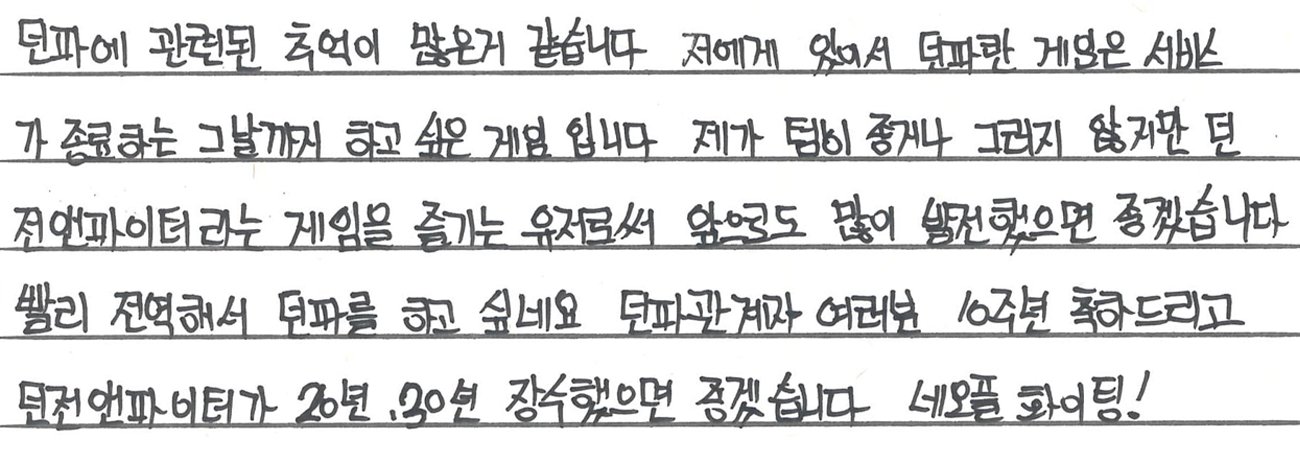 던파에 관련된 추억이 많은거 같습니다 저에게 있어서 던파란 게임은 서비스
가 종료하는 그날까지 하고 싶은 게임 입니다 제가 텁이 좋거나 그러지 않지만 던
전앤파이터라는 게임을 즐기는 유저로써 앞으로도 많이 발전했으면 좋겠습니다
빨리 전역해서 던파를 하고 싶네요 던파관계자 여러분 10주년 축하드리고
던전앤파이터가 20년.30년 장수했으면 좋겠습니다 네오플 화이팅!